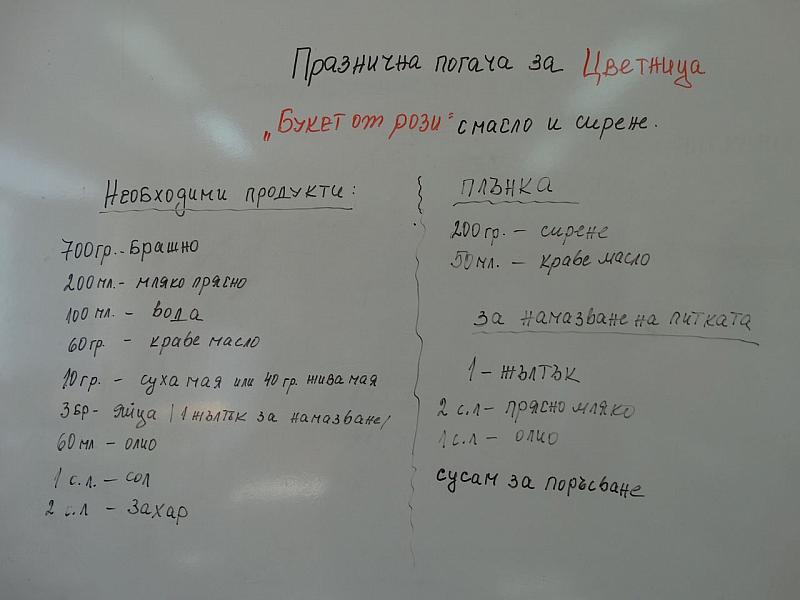 Празнична погача за Цветница
„Букет от рози" с масло и сирене.
Необходими продукти:
700гр.-Брашно
200мл.- мляко прясно
100мл. - вода
60гр. - краве масло
10гр. - суха мая или 40 гр. жива мая
3бр- яйца /1 жълтък за намазване/
60мл - олио
1 с.л. - сол
2 с.л - Захар
ПЛЪНКА
200гр. - сирене
50мл. - краве масло
за намазване на питката
1 - жълтък
2 с.л - прясно мляко
1с.л - олио
сусам за поръсване